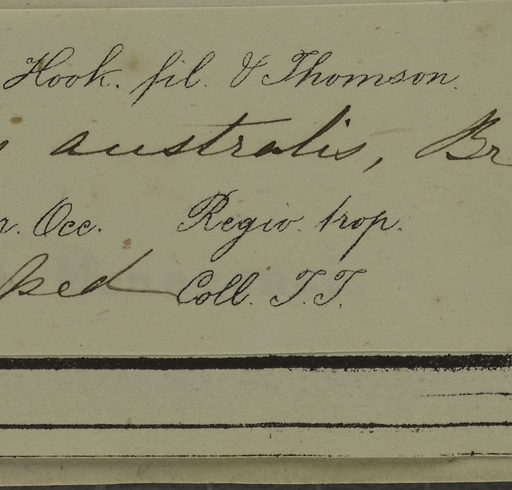 Hook. fil. & Thomson.
australis, Br
r. Occ. Regio trop.
Coll. T.T.